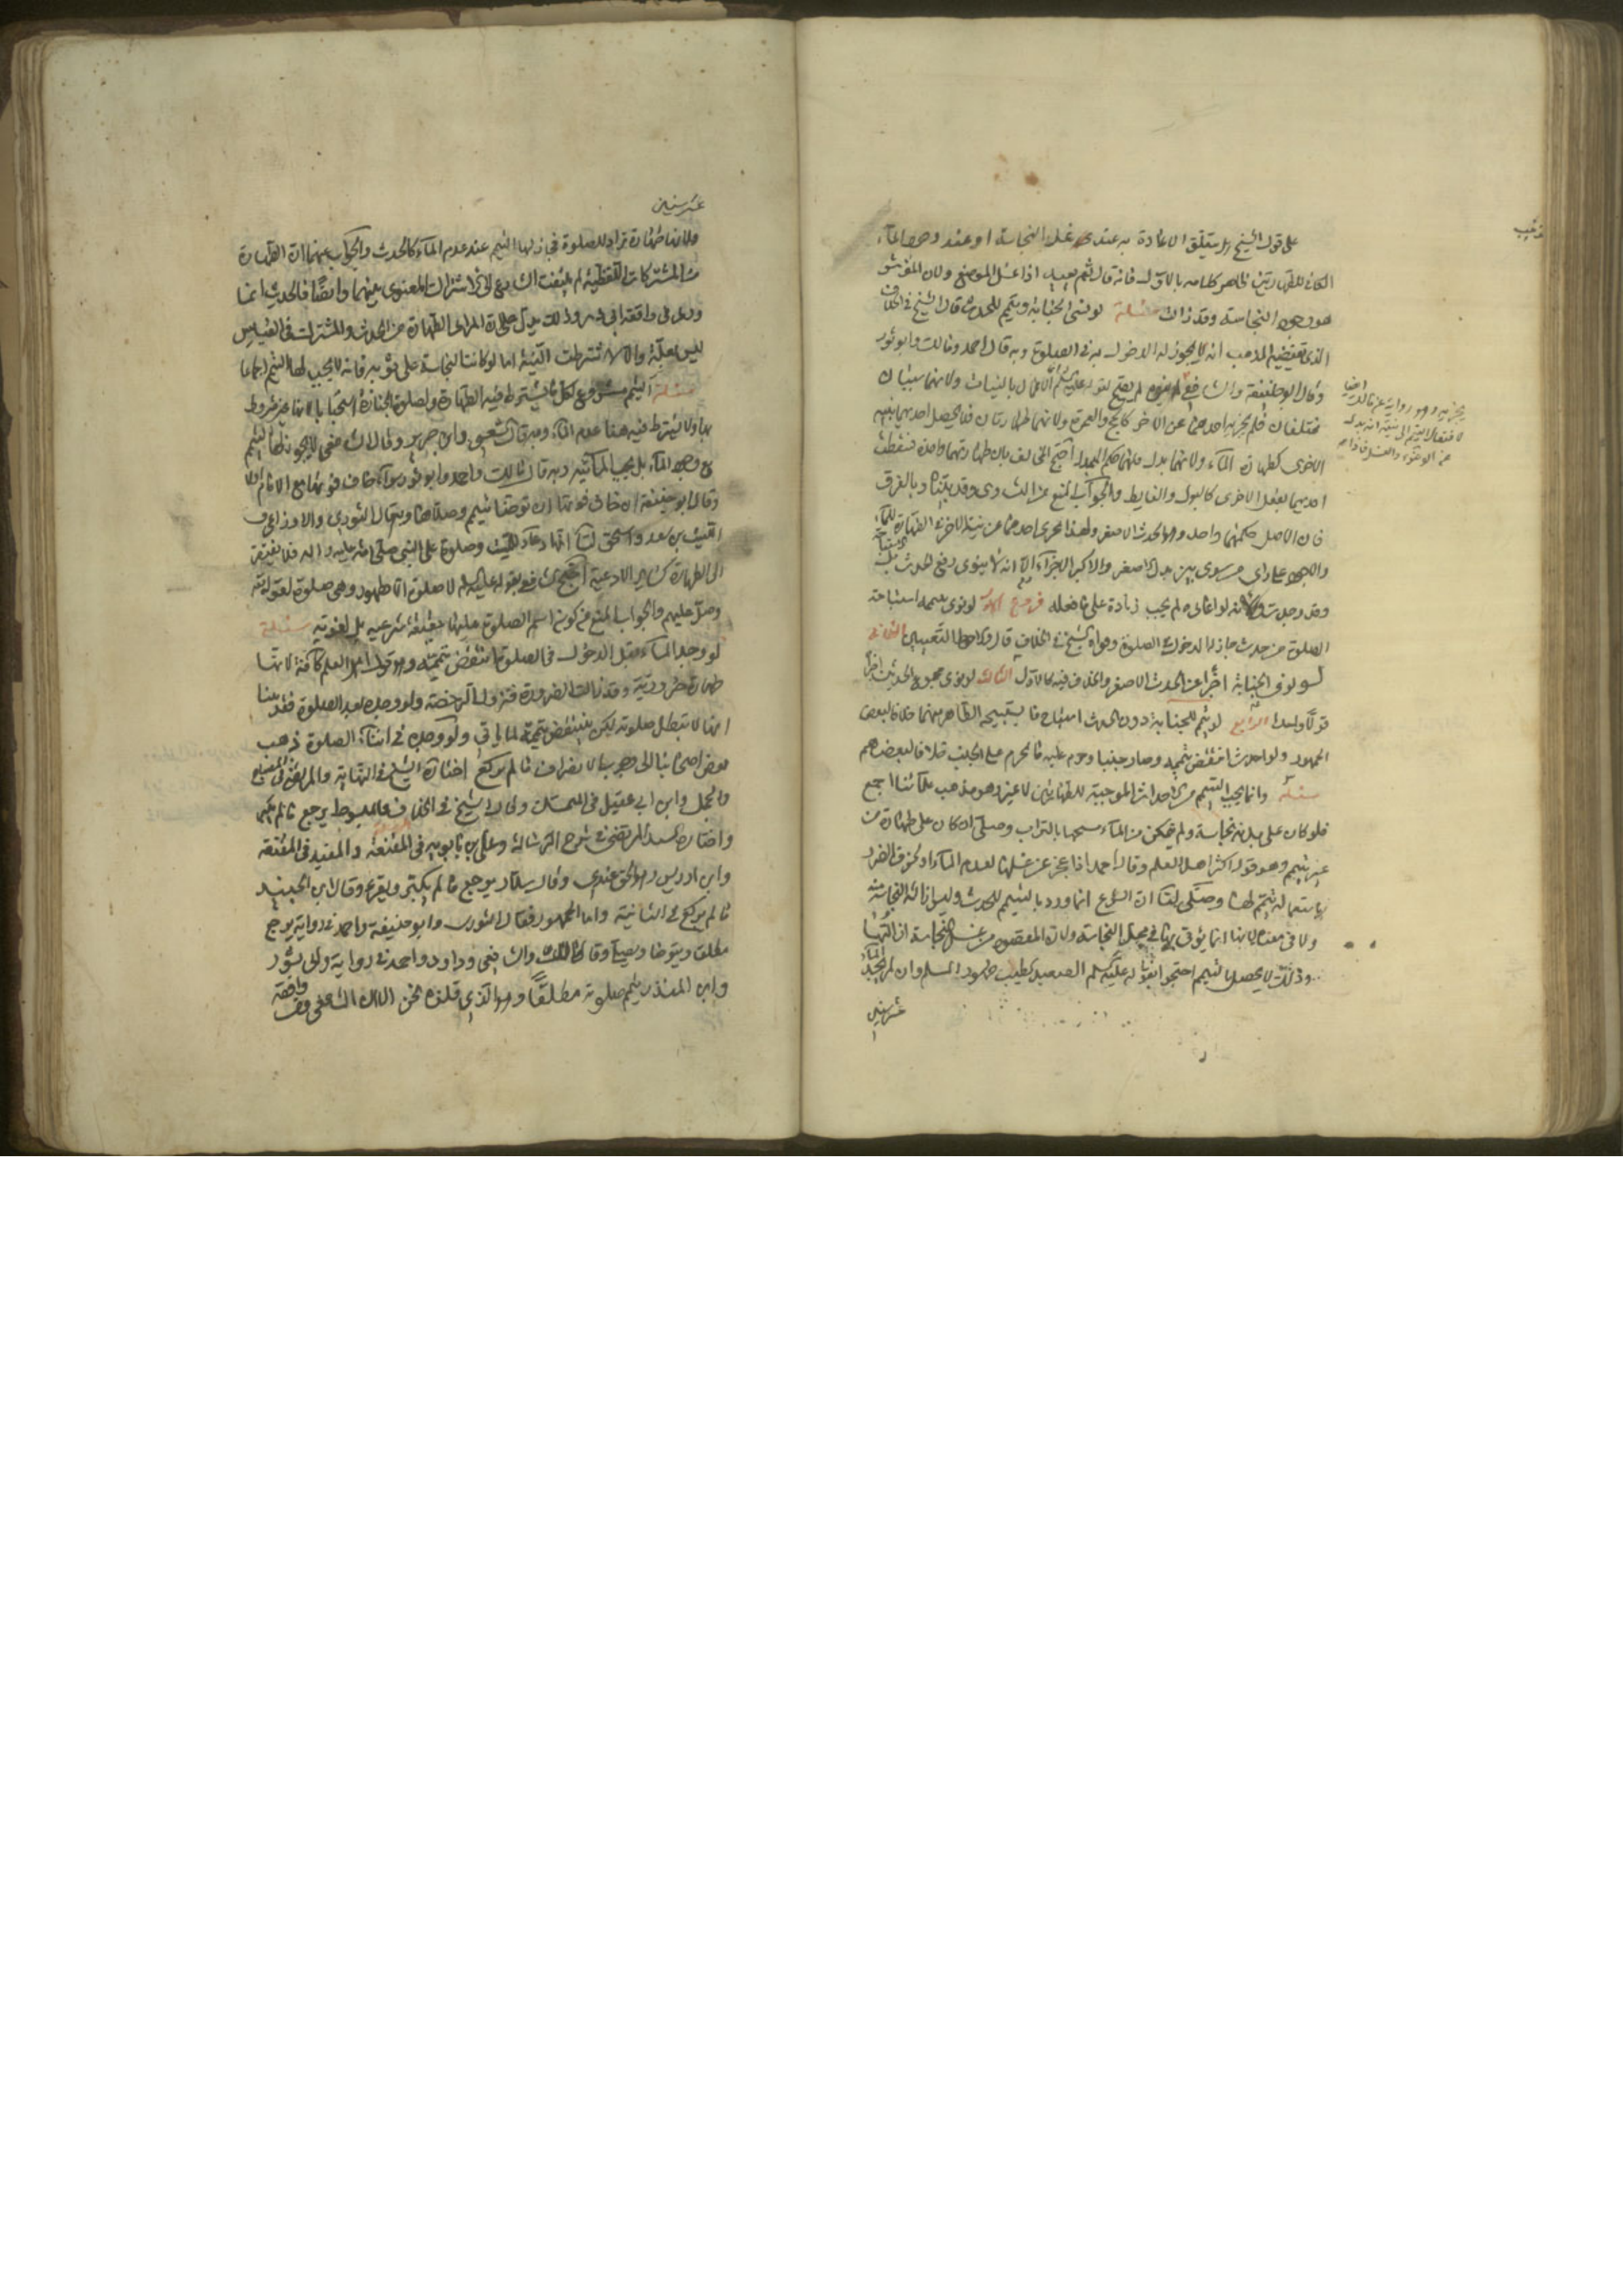 على قول الشيخ هل يتعلق الاعادة به عند غسل النجاسة او عند وجود الماء
الكافي للطهارتين ظاهر كلامه بالاول فانه قال ثم يعيد اذا غسل الموضع ولان المؤثر
هو وجود النجاسة وقد زال مسئلة لو نسي الجنابة وتيمم للحدث قال الشيخ في الخلاف
الذي يقتضيه المذهب انه لا يجوز له الدخول به في الصلوة وبه قال احمد ومالك وابو ثور
وقال ابو حنيفة والشافعي لم يصح لقوله عليه السلم الاعمال بالنيات ولانهما سببان
مختلفان فلم يجز احدهما عن الاخر كالحج والعمرة ولانهما طهارتان فلا يحصل احديهما بنية
الاخرى كطهارة الماء ولانهما بدل فلهما حكم المبدل احتج المخالف بان طهارتهما واحدة فسقطت
احديهما بفعل الاخرى كالبول والغايط والجواب المنع من التساوي وقد بينا وبالفرق
فان الاصل حكمهما واحد وهو الحدث الاصغر ولهذا اجزى احدهما عن نية الاخر في الطهارة للماء
والوجه على راي من سوى بين بدل الاصغر والاكبر الاجزاء الا انه لا ينوي رفع الحدث بل استباحة
وقد وجدت ولانه لو اعاده لم يجب زيادة على ما فعله فروع الاول لو نوى بتيممه استباحة
الصلوة من حدث جاز له الدخول في الصلوة وهو الشيخ في الخلاف قال والاحوط التعيين الثاني
لو نوى الجنابة اجزا عن الحدث الاصغر والخلاف فيه كالاول الثالث لو نوى جميع الحدثين اجزا
قولا واحدا الرابع لو تيمم للجنابة دون الحدث استباح ما يستبيحه الطاهر منهما خلافا لبعض
الجمهور ولو احدث انتقض تيممه وصار جنبا وحرم عليه ما يحرم على الجنب خلافا لبعضهم
مسئلة وانما يجب التيمم من الاحداث الموجبة للطهارتين لا غير وهو مذهب علمائنا اجمع
فلو كان على بدنه نجاسة ولم يتمكن من الماء مسحها بالتراب وصلى ان كان على طهارة من
غير تيمم وهو قول اكثر اهل العلم وقال احمد اذا عجز عن غسلها لعدم الماء او لخوف الضرر
باستعماله تيمم لها وصلى لنا ان الشرع انما ورد بالتيمم للحدث وليس ازالة النجاسة منه
ولا في معناه لانها انما يؤتى بها في محل النجاسة ولان المقصود من غسل النجاسة ازالتها
وذلك لا يحصل بالتيمم احتجوا بقوله عليه السلم الصعيد الطيب طهور المسلم وان لم يجد الماء
عشر سنين
عشر سنين
ولانها طهارة تراد للصلوة فجاز لها التيمم عند عدم الماء كالحدث والجواب عنهما ان الطهارة
من المشتركات اللفظية لم يلتفت الشارع الى ذكر اشتراك المعنوي بينهما وايضا فالحديث انما
ورد في واقعة ابي ذر وذلك يدل على ان المراد الطهارة من الحدث والمشترك في القياس
ليس بعلة والا لاشترطت النية اما لو كانت النجاسة على ثوبه فانه لا يجب لها التيمم اجماعا
مسئلة التيمم مشروع لكل ما يشترط فيه الطهارة ولصلوة الجنازة استحبابا لانها غير مشروط
بها ولا يشترط فيه هنا عدم الماء وبه قال الشعبي وابن جرير وقال الشافعي لا يجوز لها التيمم
مع وجود الماء بل يجب المائية وبه قال مالك واحمد وابو ثور سواء خاف فوتها مع الامام او لا
وقال ابو حنيفة ان خاف فوتها ان توضا تيمم وصلاها وبه قال الثوري والاوزاعي و
الليث بن سعد واسحق لنا انها دعاء للميت وصلوة على النبي صلى الله عليه واله فلا يفتقر
الى الطهارة كساير الادعية احتج الشافعي بقوله عليه السلم لا صلوة الا بطهور وهي صلوة لقوله تعالى
وصل عليهم والجواب المنع من كون اسم الصلوة عليها حقيقة شرعية بل لغوية مسئلة
لو وجد الماء قبل الدخول في الصلوة انتقض تيممه وهو قول اهل العلم كافة لانها
طهارة ضرورية وقد زالت الضرورة فتزول الرخصة ولو وجده بعد الصلوة فقد بينا
انها لا تبطل صلوته لكن ينتقض تيممه لما ياتي ولو وجده في اثناء الصلوة ذهب
بعض اصحابنا الى وجوب الانصراف ما لم يركع اختاره الشيخ في النهاية والمرتضى في المصباح
والجمل وابن ابي عقيل في المتمسك وقال الشيخ في الخلاف والمبسوط يرجع ما لم يكبر
واختاره السيد المرتضى في شرح الرسالة وعلي بن بابويه في المقنعة والمفيد في المقنعة
وابن ادريس وهو الحق عندي وقال سلار يرجع ما لم يكبر ويقرء وقال ابن الجنيد
ما لم يركع في الثانية واما الجمهور فقال الثوري وابو حنيفة واحمد في رواية يرجع
مطلقا ويتوضا ويصلي وقال مالك والشافعي وداود واحمد في رواية وابو ثور
وابن المنذر يتم صلوته مطلقا وهو الذي قلناه نحن الا ان الشافعي وافقه